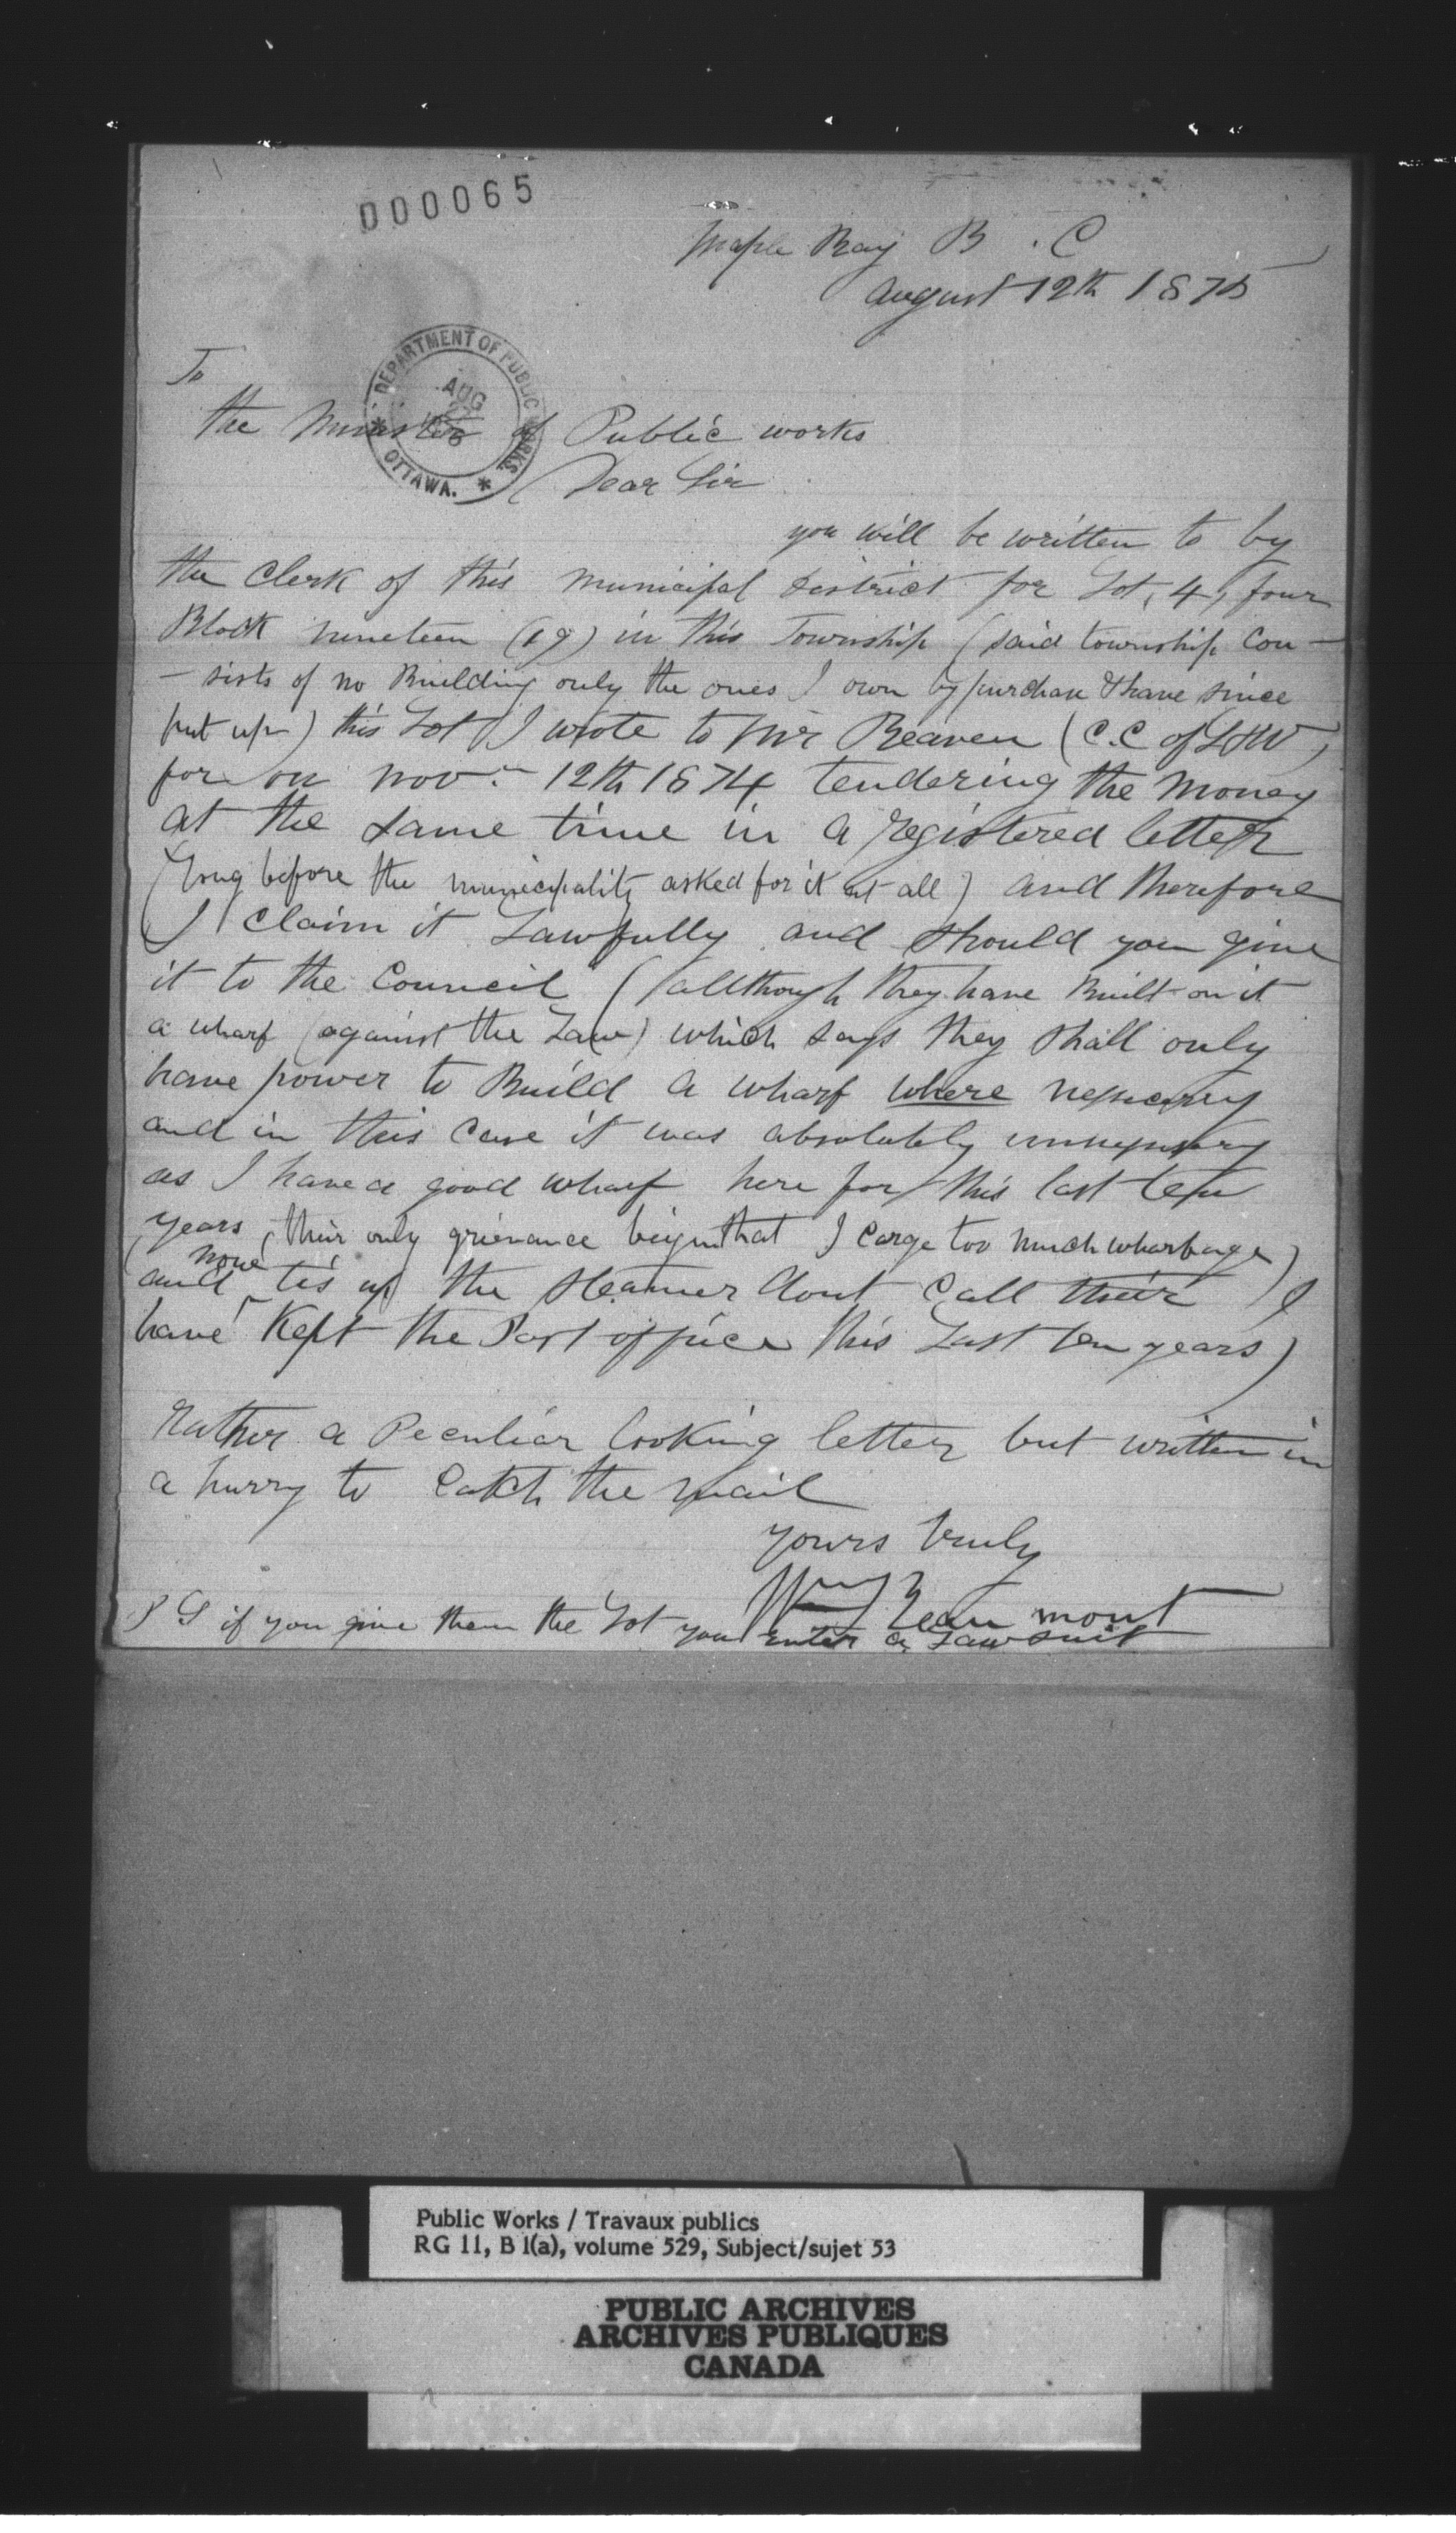 000065
Maple Bay B. C
August 12th 1875
To
the Minister of Public works
DEPARTMENT OF PUBLIC WORKS.
AUG
OTTAWA.
Dear Sir
you will be written to by
the Clerk of this Municipal District for Lot, 4, four
Block nineteen (19) in this Township (said township Con-
-sists of no Building only the ones I own by purchase & have since
put up) this Lot I wrote to Mr Beaven (C.C of L&W)
for on Nov. 12th 1874 tendering the Money
at the same time in a registered letter
(long before the municipality asked for it at all) and therefore
I claim it Lawfully and should you give
it to the Council (allthough they have Built on it
a wharf (against the Law) which says they shall only
have power to Build a wharf where nessecary
and in this Case it was absolutely unnessecary
as I have a good wharf here for this last ten
years (their only grievance beign that I carge too much wharfage)
and now tis up the steamer dont Call their (I
have Kept the Post office this Last ten years)
Rather a Peculiar looking letter but written in
a hurry to Catch the mail
yours truly
Wm Beaumont
P S if you give them the Lot you enter a Lawsuit
Public Works / Travaux publics
RG 11, B 1(a), volume 529, Subject/sujet 53
PUBLIC ARCHIVES
ARCHIVES PUBLIQUES
CANADA